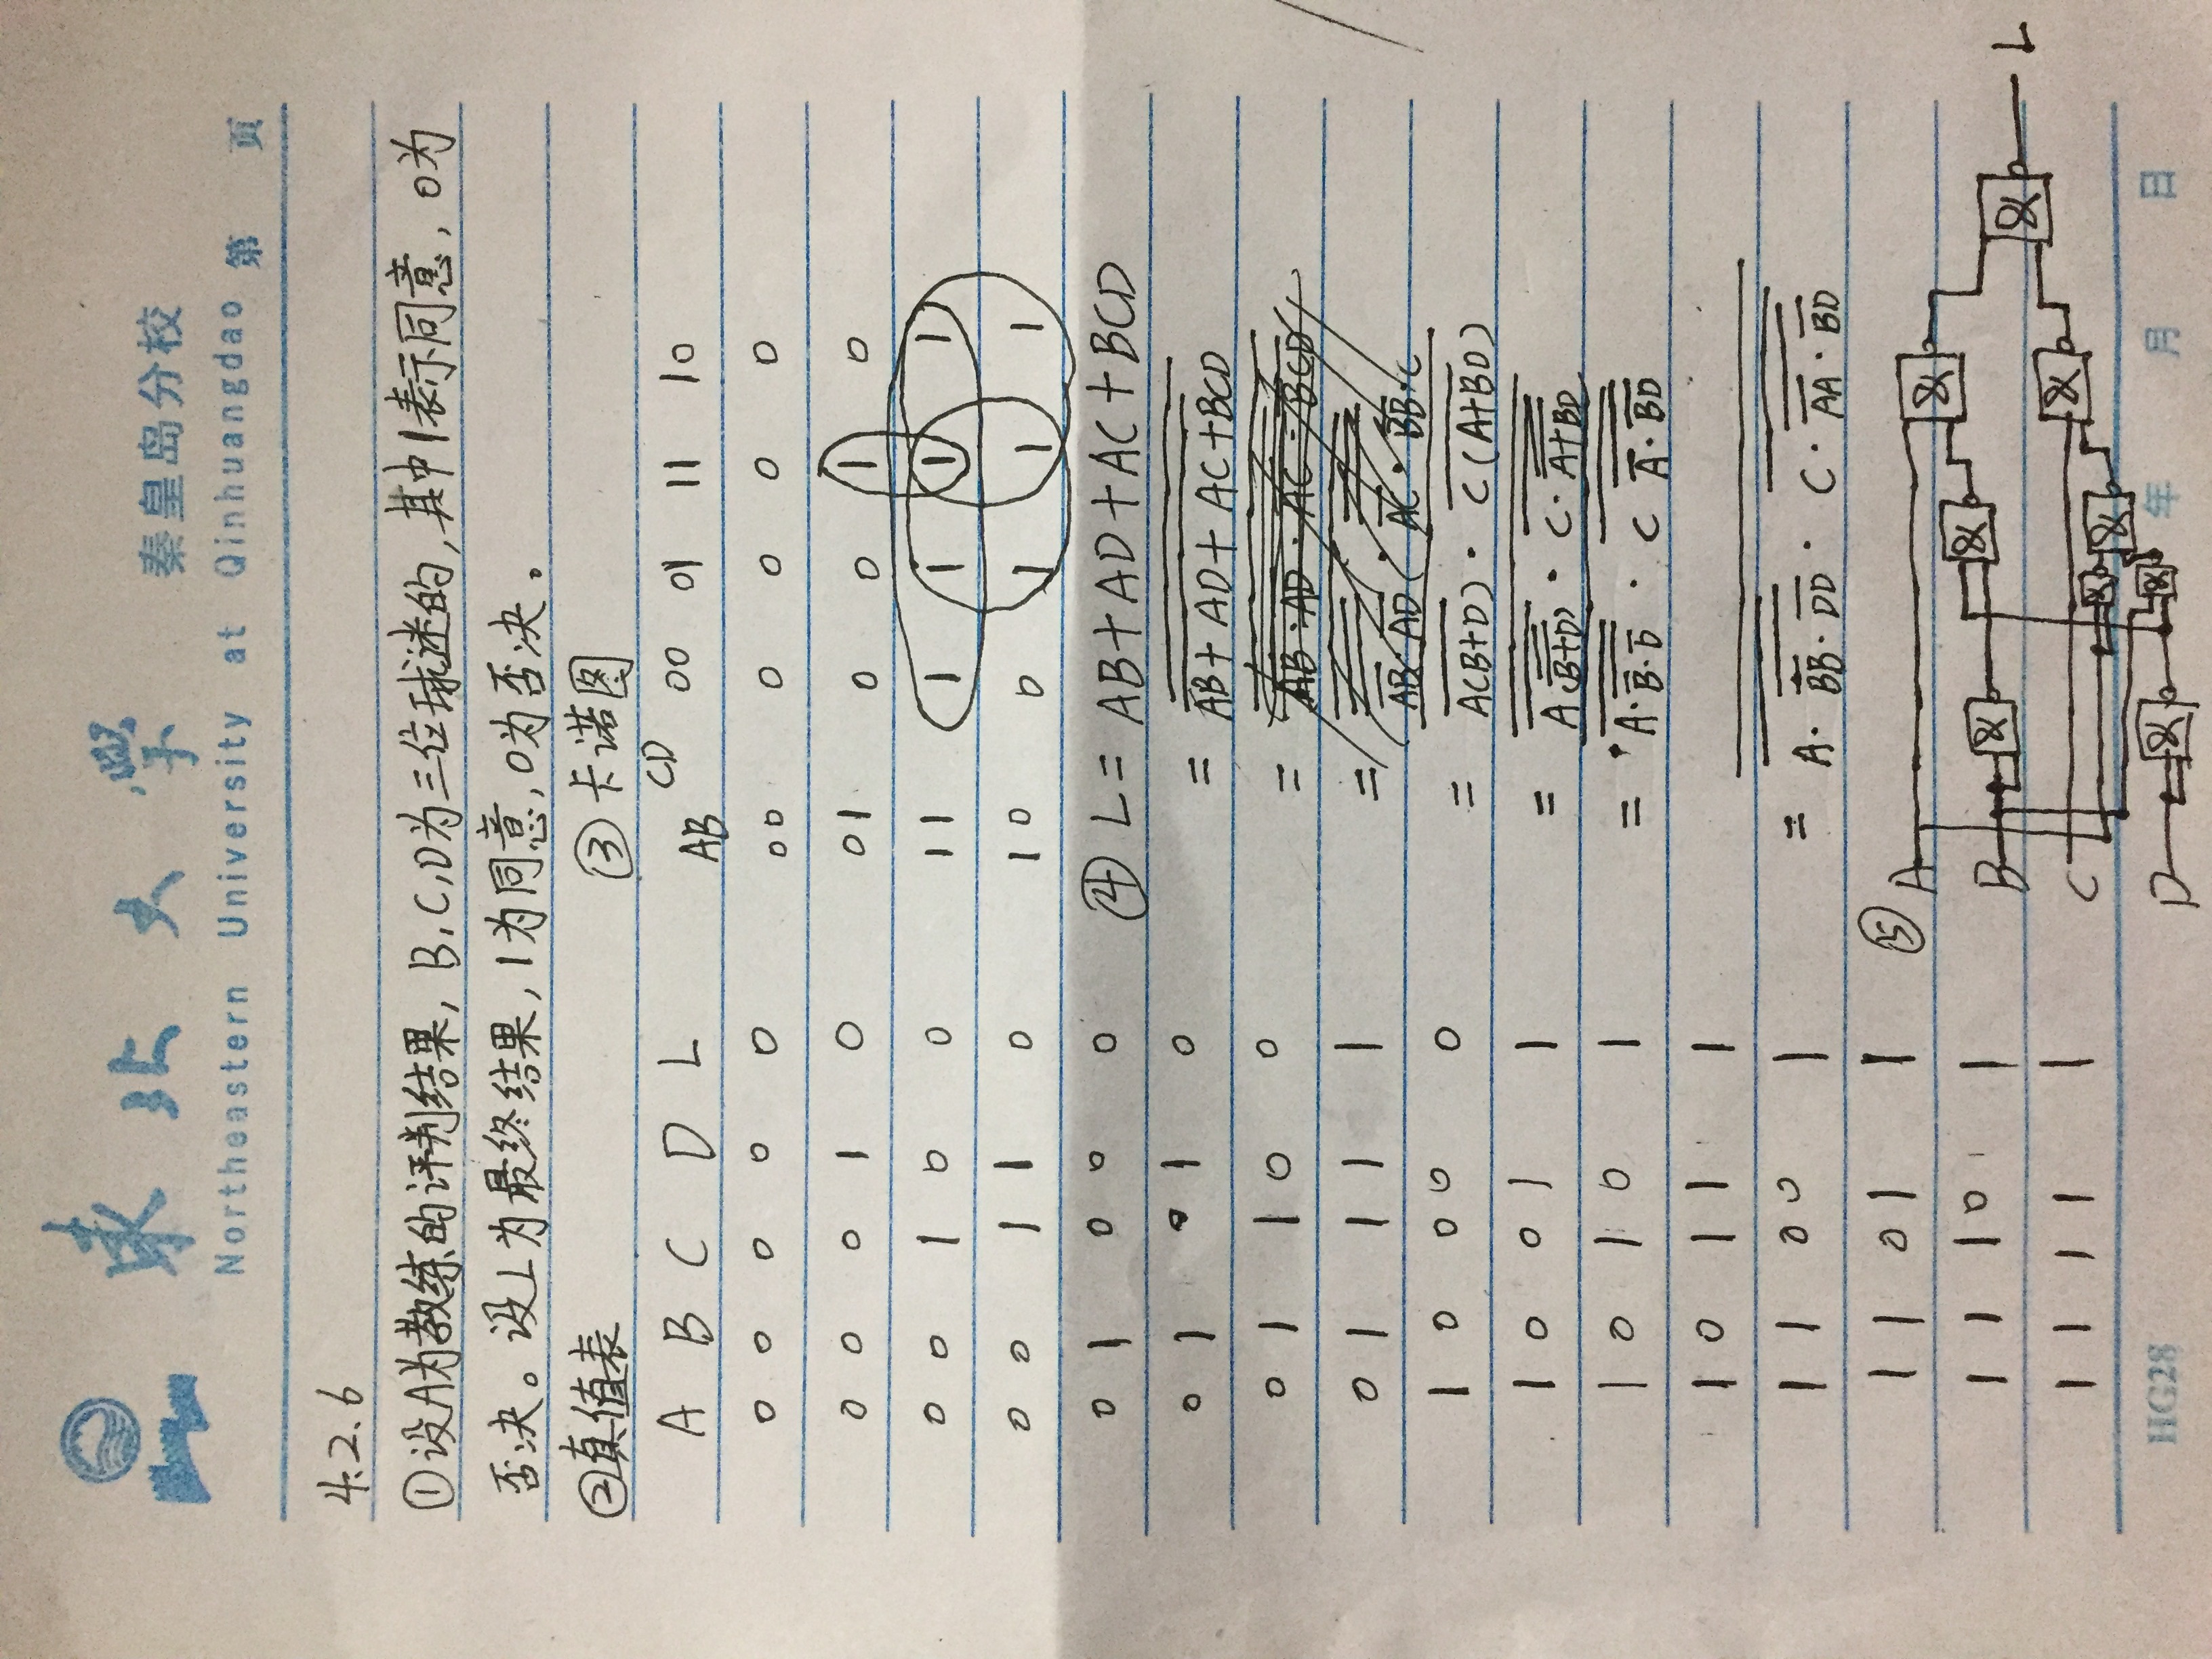 東北大學 秦皇岛分校
Northeastern University at Qinhuangdao 第 页
4.2.6
①设A为教练的评判结果, B,C,D为三位球迷的,其中1表示同意, 0为
否决。设L为最终结果,1为同意,0为否决。
②真值表
A B C D L
0 0 0 0 0
0 0 0 1 0
0 0 1 0 0
0 0 1 1 0
0 1 0 0 0
0 1 0 1 0
0 1 1 0 0
0 1 1 1 1
1 0 0 0 0
1 0 0 1 1
1 0 1 0 1
1 0 1 1 1
1 1 0 0 1
1 1 0 1 1
1 1 1 0 1
1 1 1 1 1
③卡诺图
AB CD 00 01 11 10
00 0 0 0 0
01 0 0 1 0
11 1 1 1 1
10 0 1 1 1
④ L = AB+AD+AC+BCD
= AB+AD+AC+BCD
= AB·AD·AC·BCD
= AB·AD·AC·BB·C
= A(B+D)·C(A+BD)
= A(B+D)·C·A+BD
= A·B·D·C A·BD
= A·BB·DD·C·AA·BD
⑤ A
& & & & L
B
C
& & & &
D
&
HG28 年 月 日